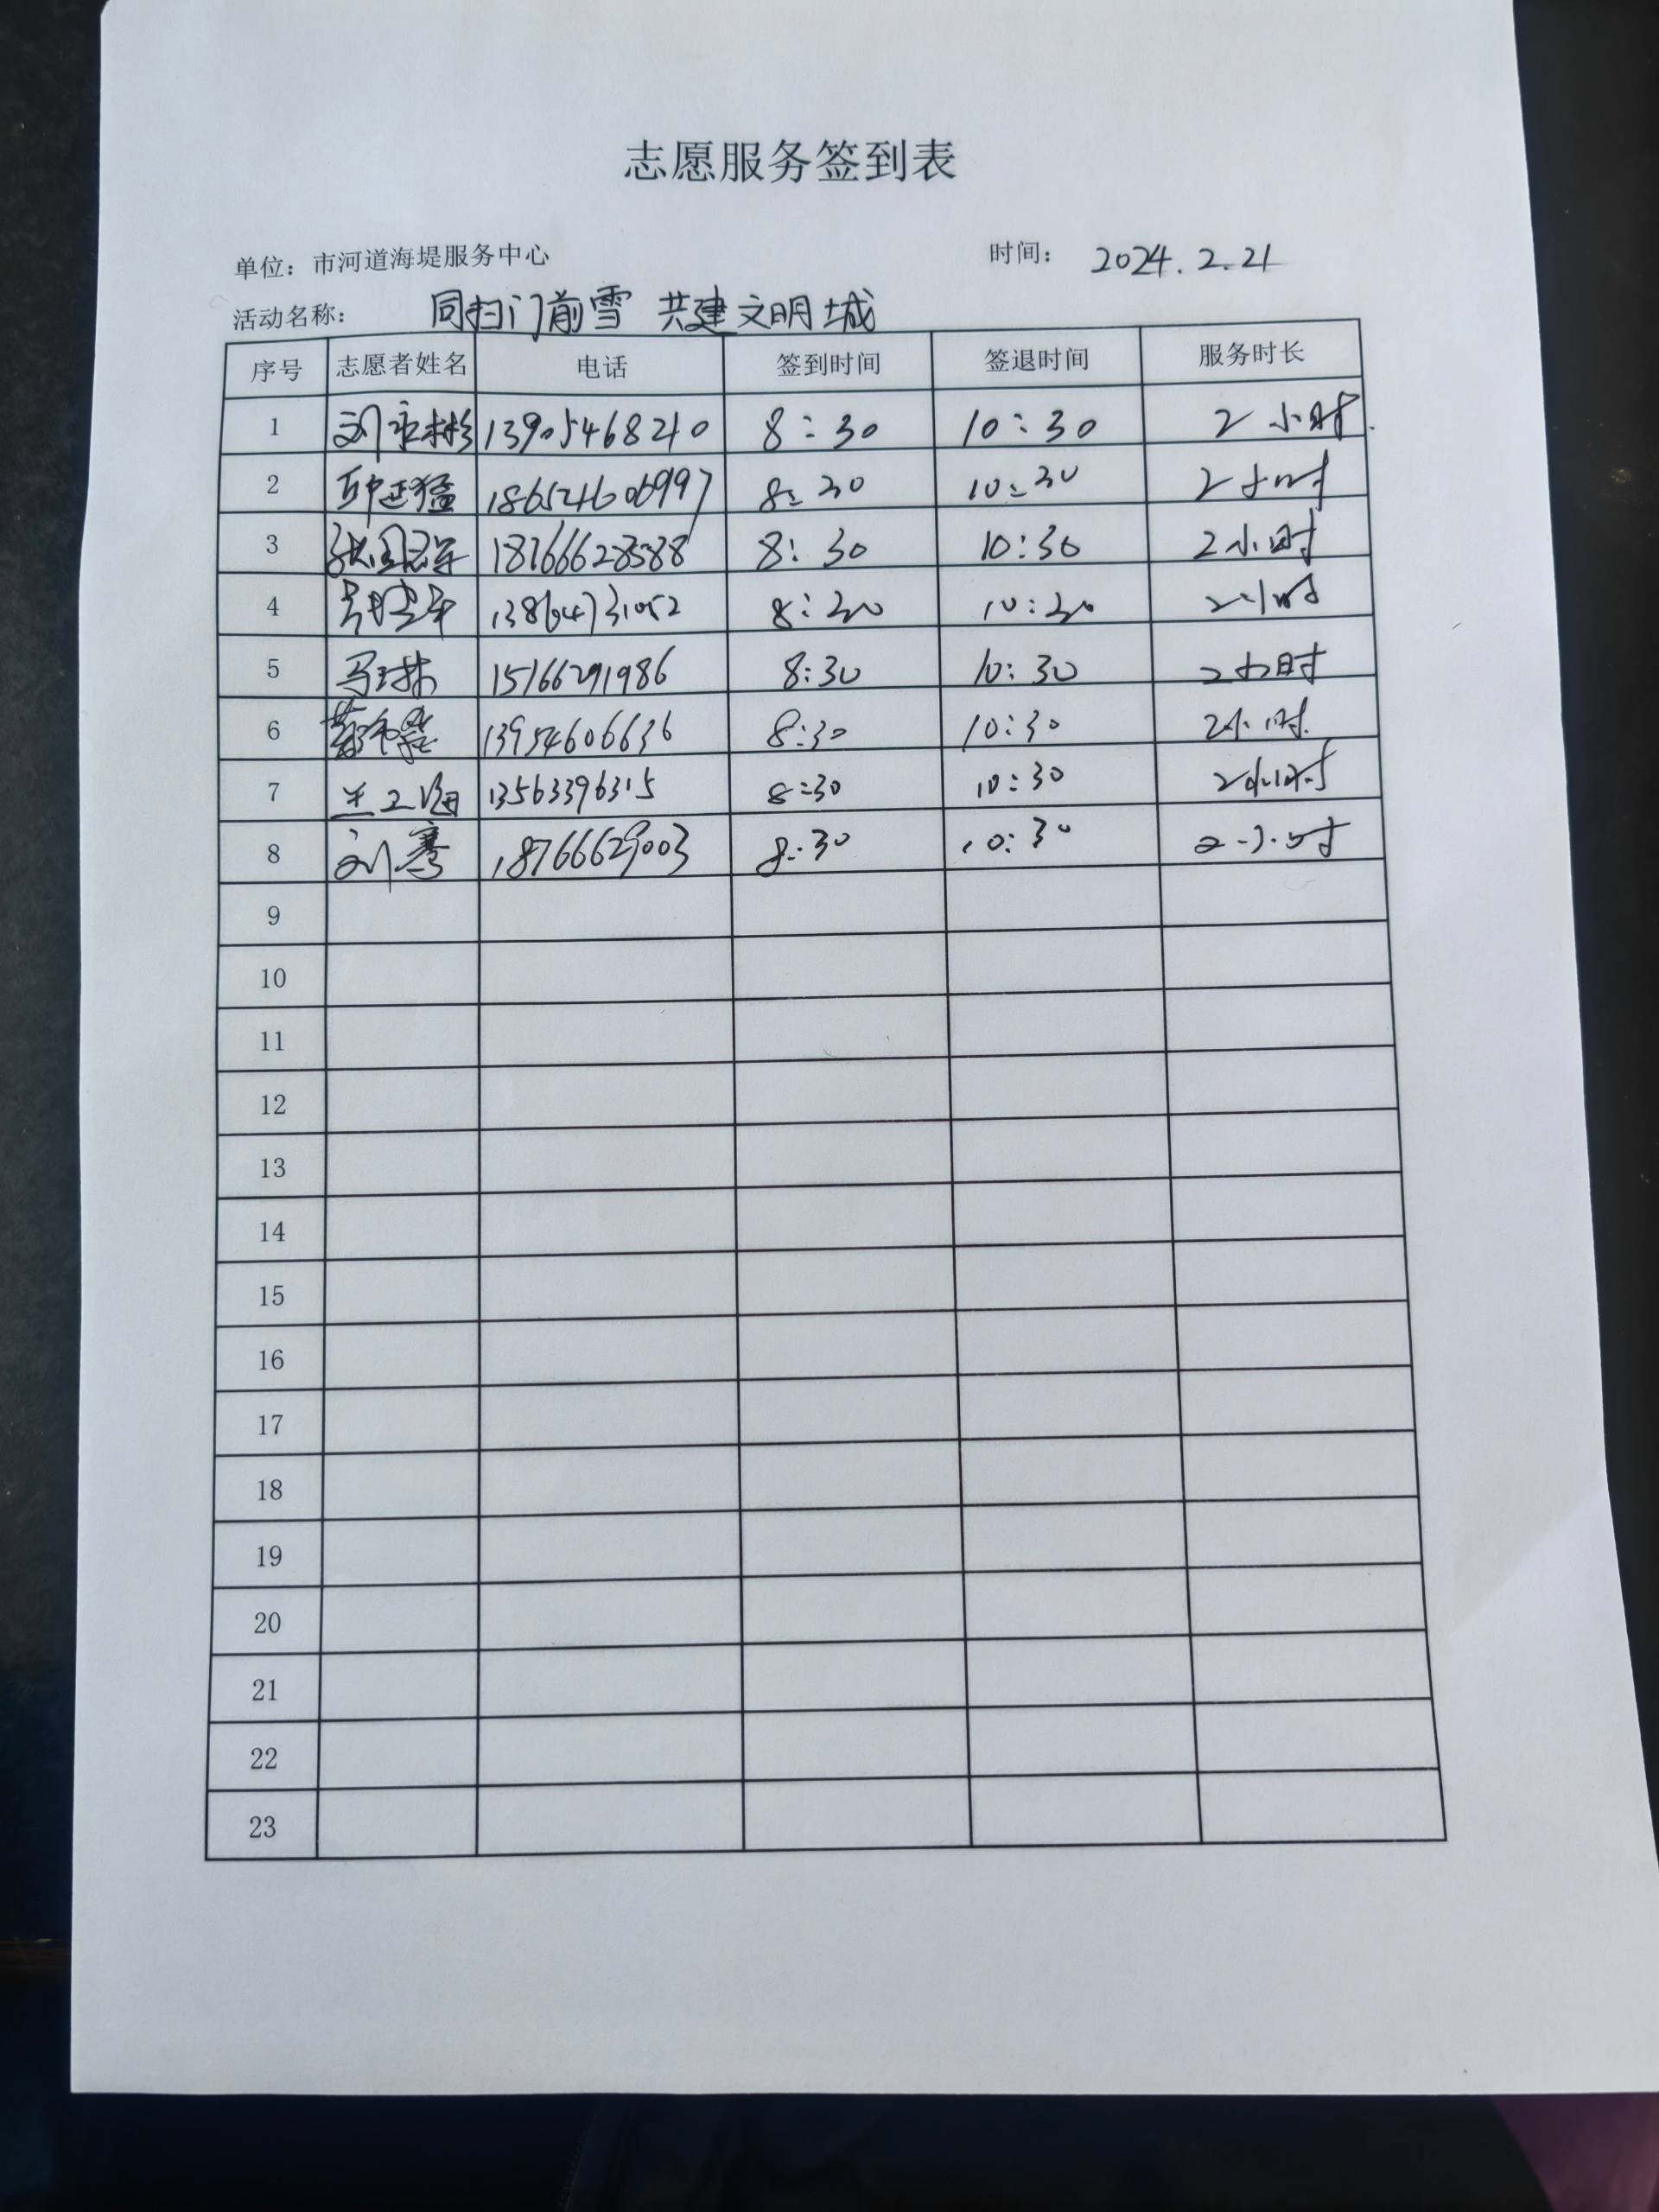 志愿服务签到表
单位：市河道海堤服务中心 时间： 2024.2.21
活动名称： 同扫门前雪 共建文明城
序号 志愿者姓名 电话 签到时间 签退时间 服务时长
1 刘 彬 13905468210 8:30 10:30 2小时
2 猛 186524606997 8:30 10:30 2小时
3 张国军 18766628588 8:30 10:30 2小时
4 13864731052 8:30 10:30 2小时
5 马琳 15166291986 8:30 10:30 2小时
6 13954606636 8:30 10:30 2小时
7 兰卫海 13563396315 8:30 10:30 2小时
8 刘骞 18766629003 8:30 10:30 2小时
9
10
11
12
13
14
15
16
17
18
19
20
21
22
23